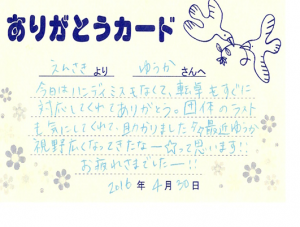 ありがとうカード
えんさき より ゆうか さんへ
今日はハンディミスもなくて、転卓もすぐに
対応してくれてありがとう。団体のラスト
も気にしてくれて、助かりました 最近ゆうか
視野広くなってきたなー☆って思います!!
お疲れさまでしたー!!
2016年4月30日